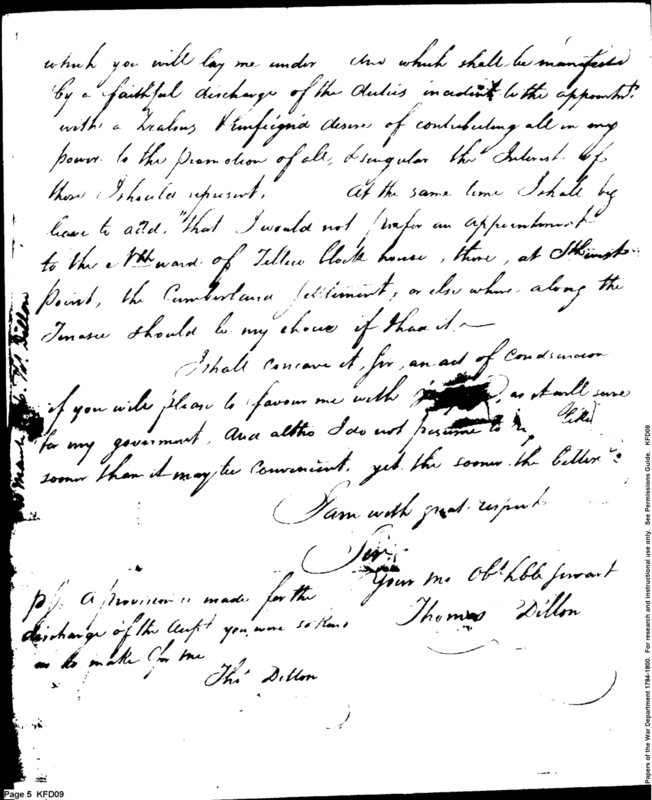 which you will lay me under and which shall be manifested
by a faithful discharge of the duties incident to the appointmt.
with a Zealous & unfeigned desire of contributing all in my
power to the promotion of all, & singular the Interest of
those I should represent. At the same time I shall beg
leave to add, "that I would not prefer an appointment
to the Nthward of Tellico Block house, there, at Sthwest
Point, the Cumberland settlement, or else where along the
Tenasee should be my choice if I had it.~
I shall conceave it, Sir, an act of Condesension
if you will please to favour me with as it will serve
for my goverment, And altho I do not presume to
sooner than it may be Convenient, yet the sooner the better
I am with great respect
Sir
Your mo Obt. Hble servant
Thomas Dillon
pS. A provision is made for the
discharge of the you were so kind
as to make for me
Thos Dillon
Dillon
Page 5 KFD09
Papers of the War Department 1784-1800. For research and instructional use only. See Permissions Guide. KFD09